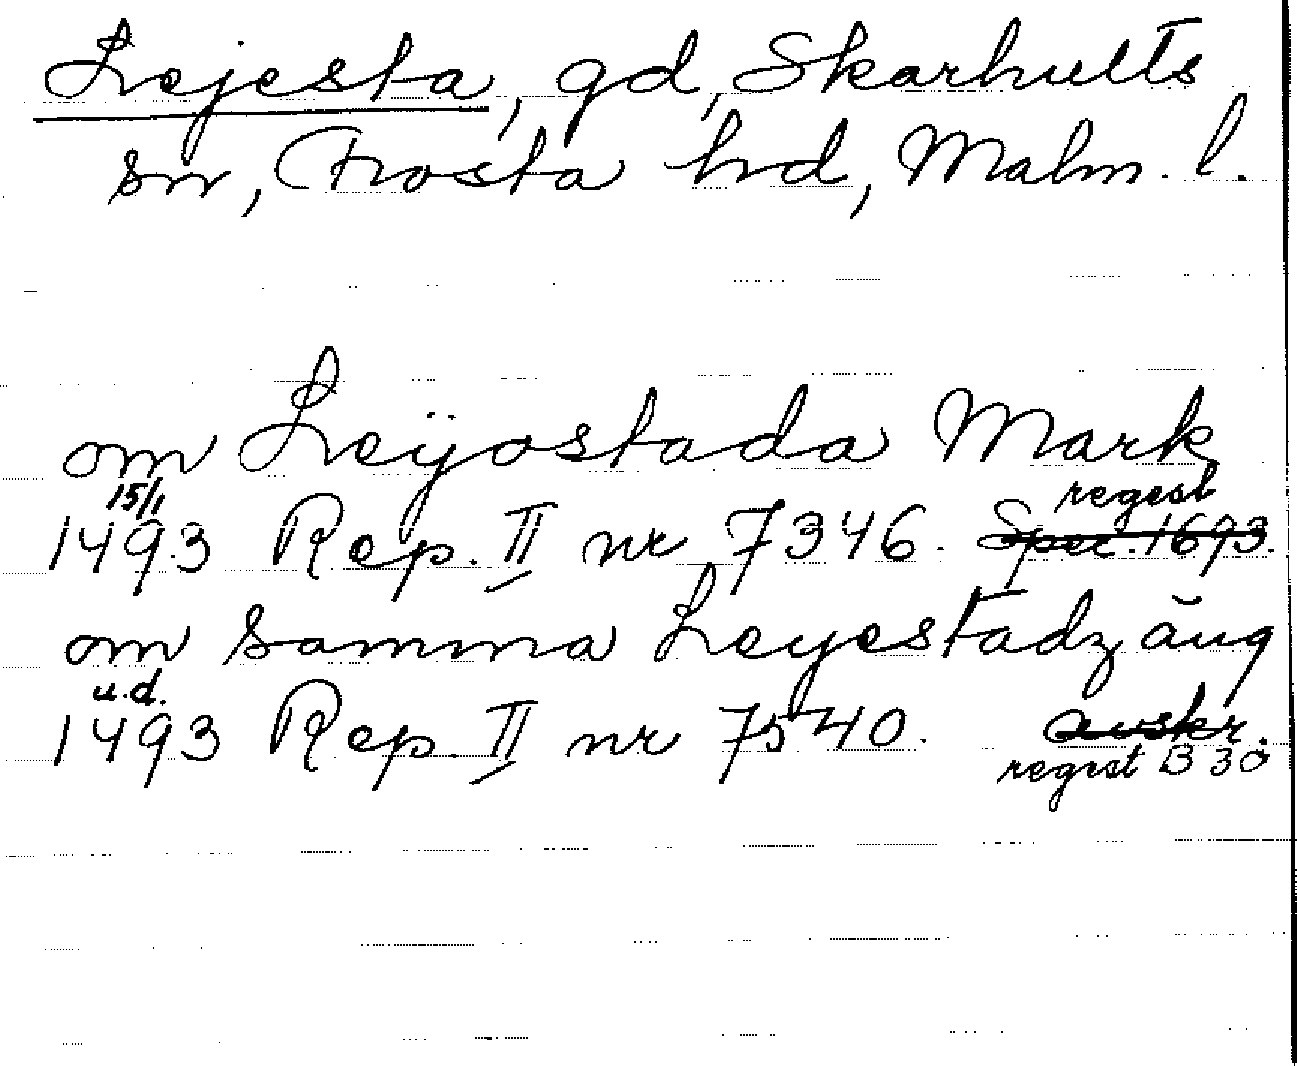 Lejesta, gd, Skarhults
sn, Frosta hrd, Malm. l.
om Leÿostada Mark
15/1 regest
1493 Rep. II nr 7346. Spec. 1693.
om samma Leyestadz äng
u.d.
1493 Rep. II nr 7540. avskr.
regest B 30